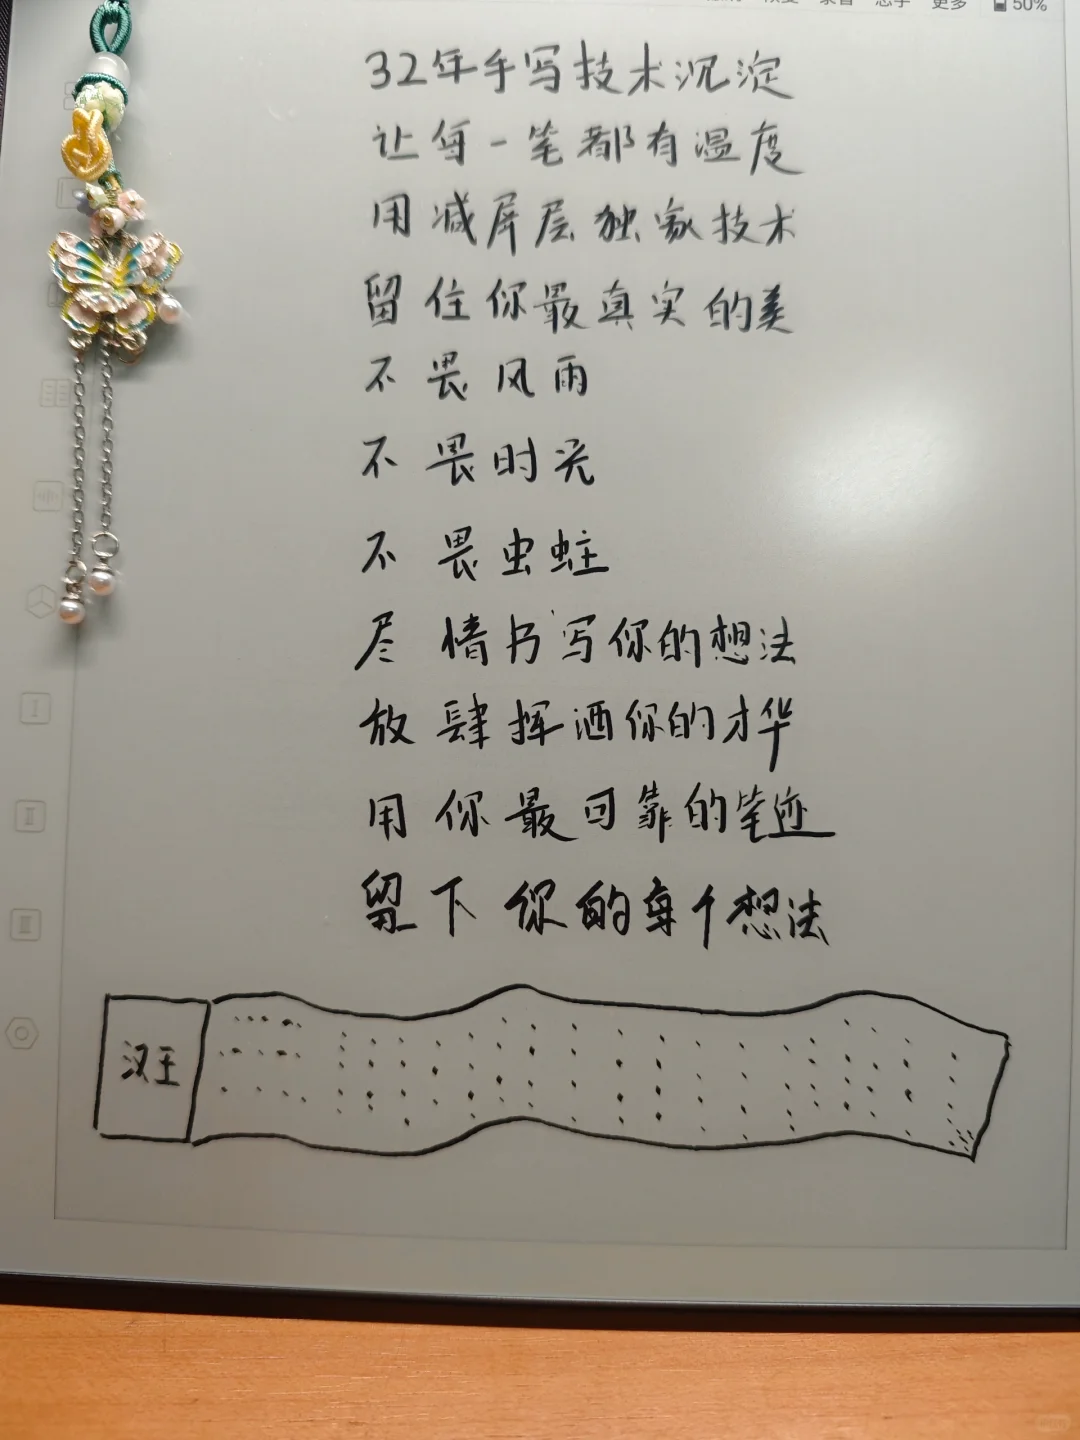 更多 50%
32年手写技术沉淀
让每一笔都有温度
用减屏层独家技术
留住你最真实的美
不畏风雨
不畏时光
不畏虫蛀
尽情书写你的想法
放肆挥洒你的才华
用你最可靠的笔迹
留下你的每个想法
汉王
I
II
III